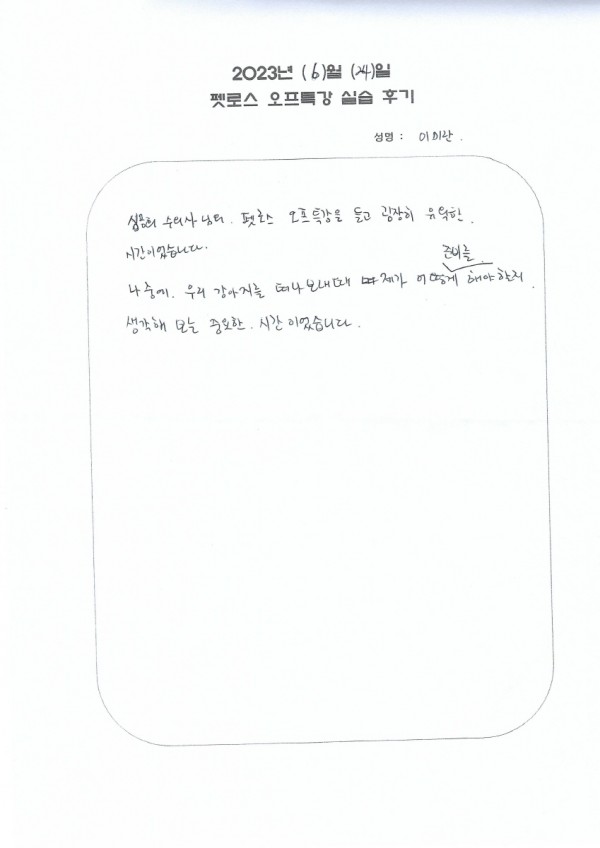 2023년 (6)월 (24)일
펫로스 오프특강 실습 후기
성명 : 이미란.
심용희 수의사님의. 펫로스 오프특강을 듣고 굉장히 유익한.
시간이었습니다.
준비를
나중에. 우리 강아지를 떠나보낼때 제가 어떻게 해야할지.
생각해 보는 중요한. 시간이었습니다.